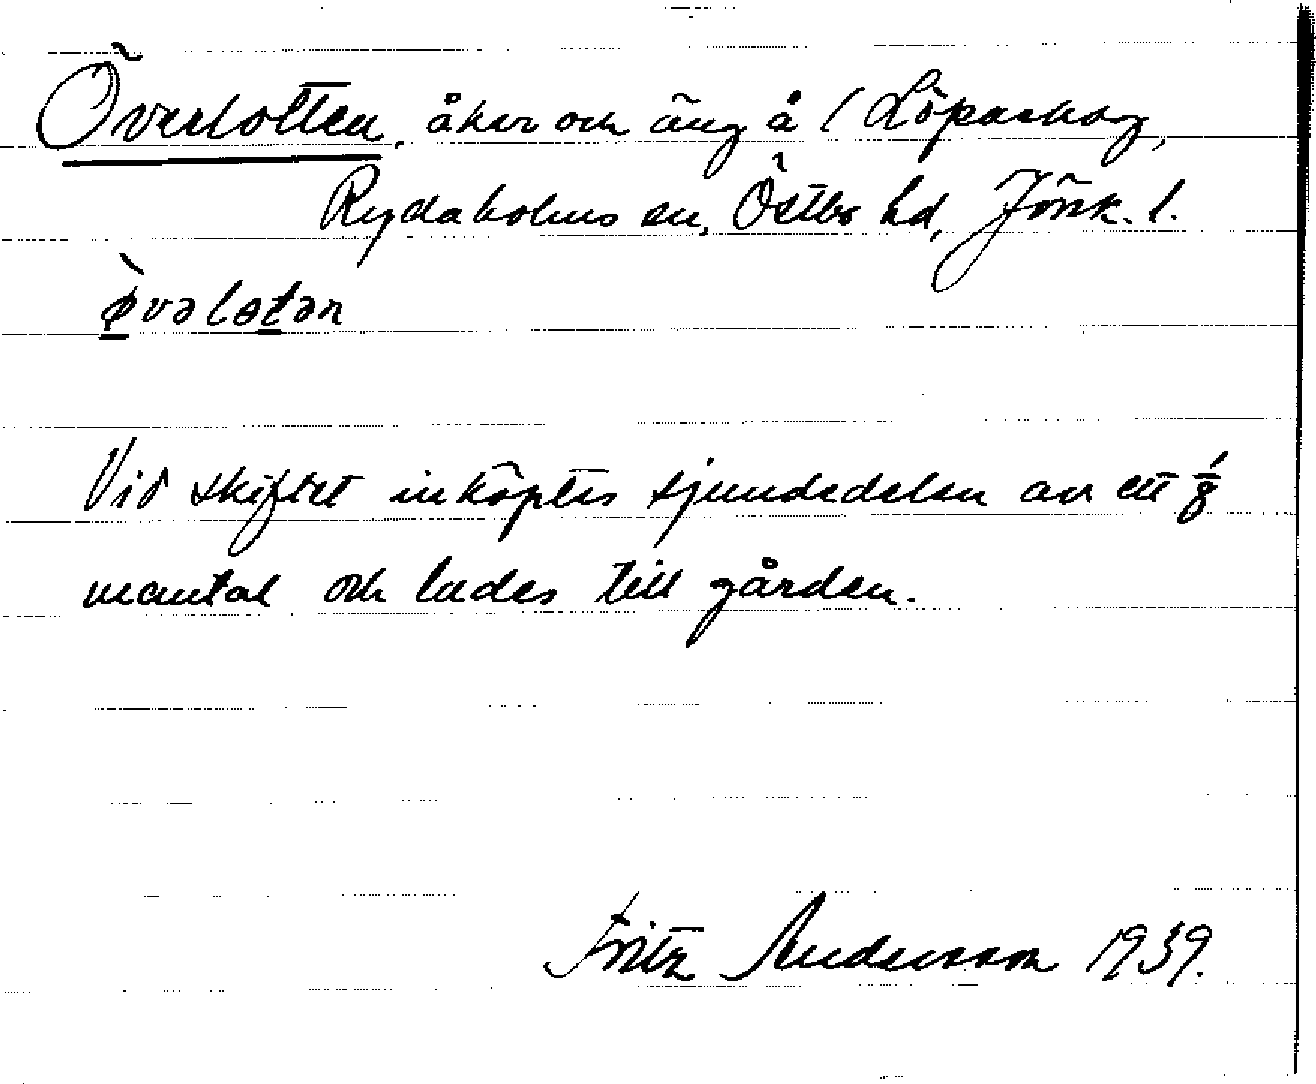 Överlotten, åker och äng å Löpaskog,
Rydaholms sn, Östbo hd, Jönk. l.
ø̀vəlɵtən
Vid skiftet inköptes sjundedelen av ett 1/8
mantal och lades till gården.
Fritz Andersson 1939.